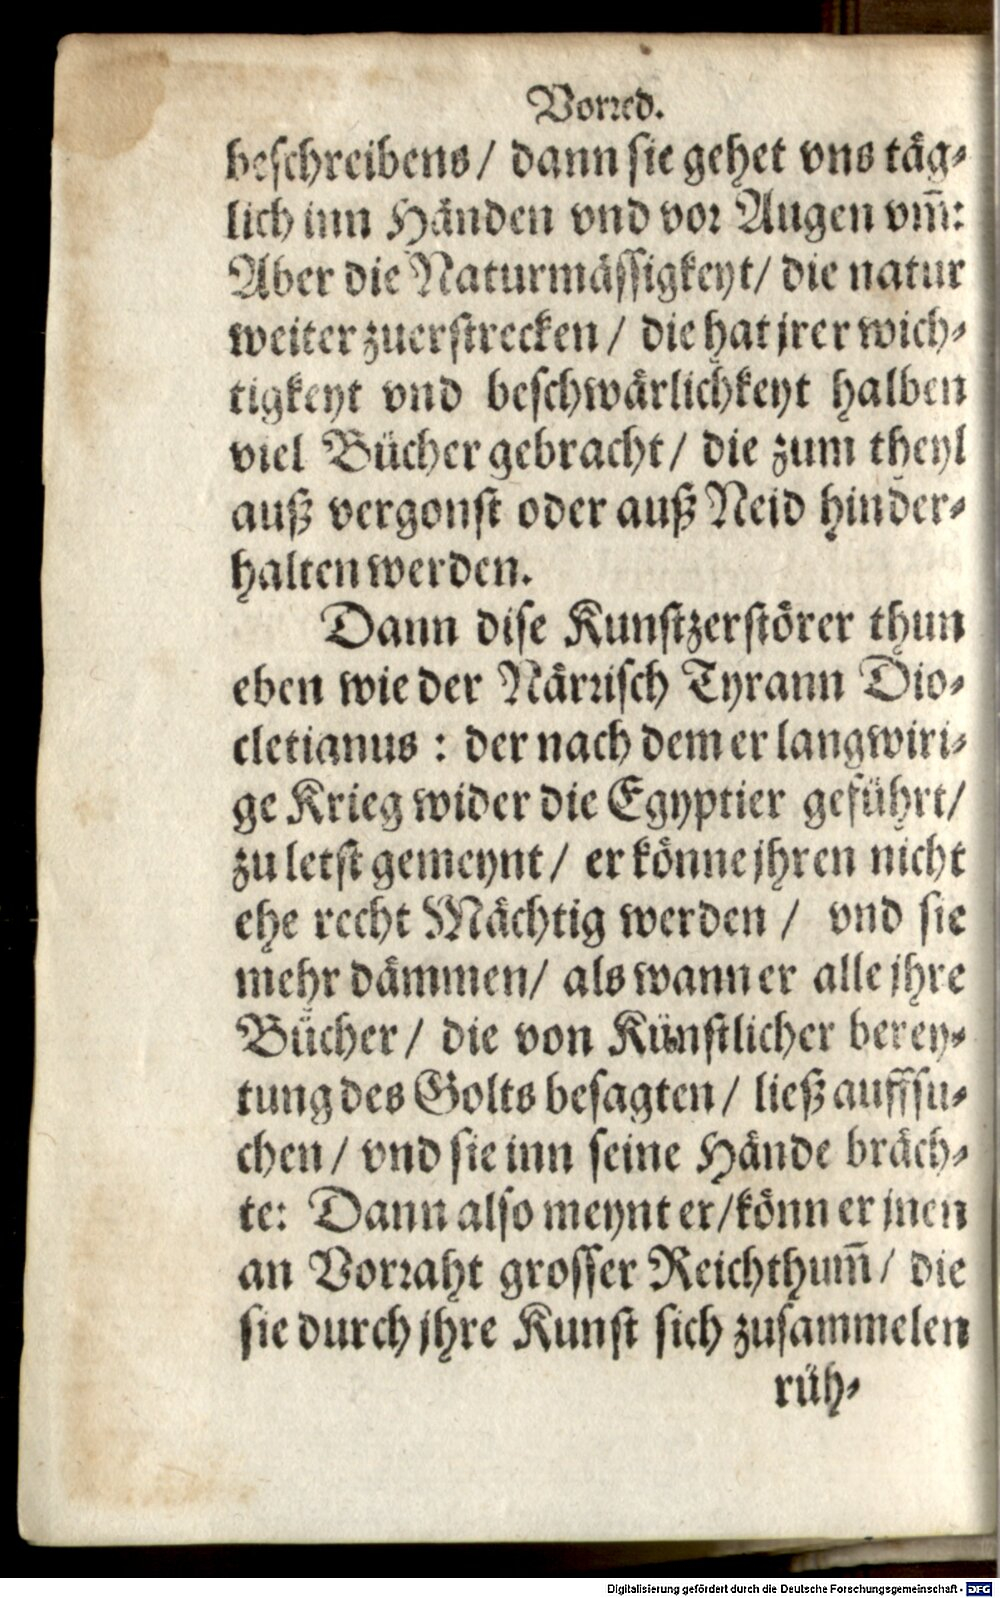 Vorred.
beschreibens / dann sie gehet vns täg-
lich inn Händen vnd vor Augen vm̃:
Aber die Naturmässigkeyt / die natur
weiter zuerstrecken / die hat jrer wich-
tigkeyt vnd beschwärlichkeyt halben
viel Bücher gebracht / die zum theyl
auß vergonst oder auß Neid hinder-
halten werden.
Dann dise Kunstzerstörer thun
eben wie der Närrisch Tyrann Dio-
cletianus : der nach dem er langwiri-
ge Krieg wider die Egyptier geführt /
zu letst gemeynt / er könne jhren nicht
ehe recht Mächtig werden / vnd sie
mehr dämmen / als wann er alle jhre
Bücher / die von Künstlicher berey-
tung des Golts besagten / ließ auffsu-
chen / vnd sie inn seine Hände bräch-
te: Dann also meynt er / könn er jnen
an Vorraht grosser Reichthum̃ / die
sie durch jhre Kunst sich zusammelen
rüh-
Digitalisierung gefördert durch die Deutsche Forschungsgemeinschaft - DFG